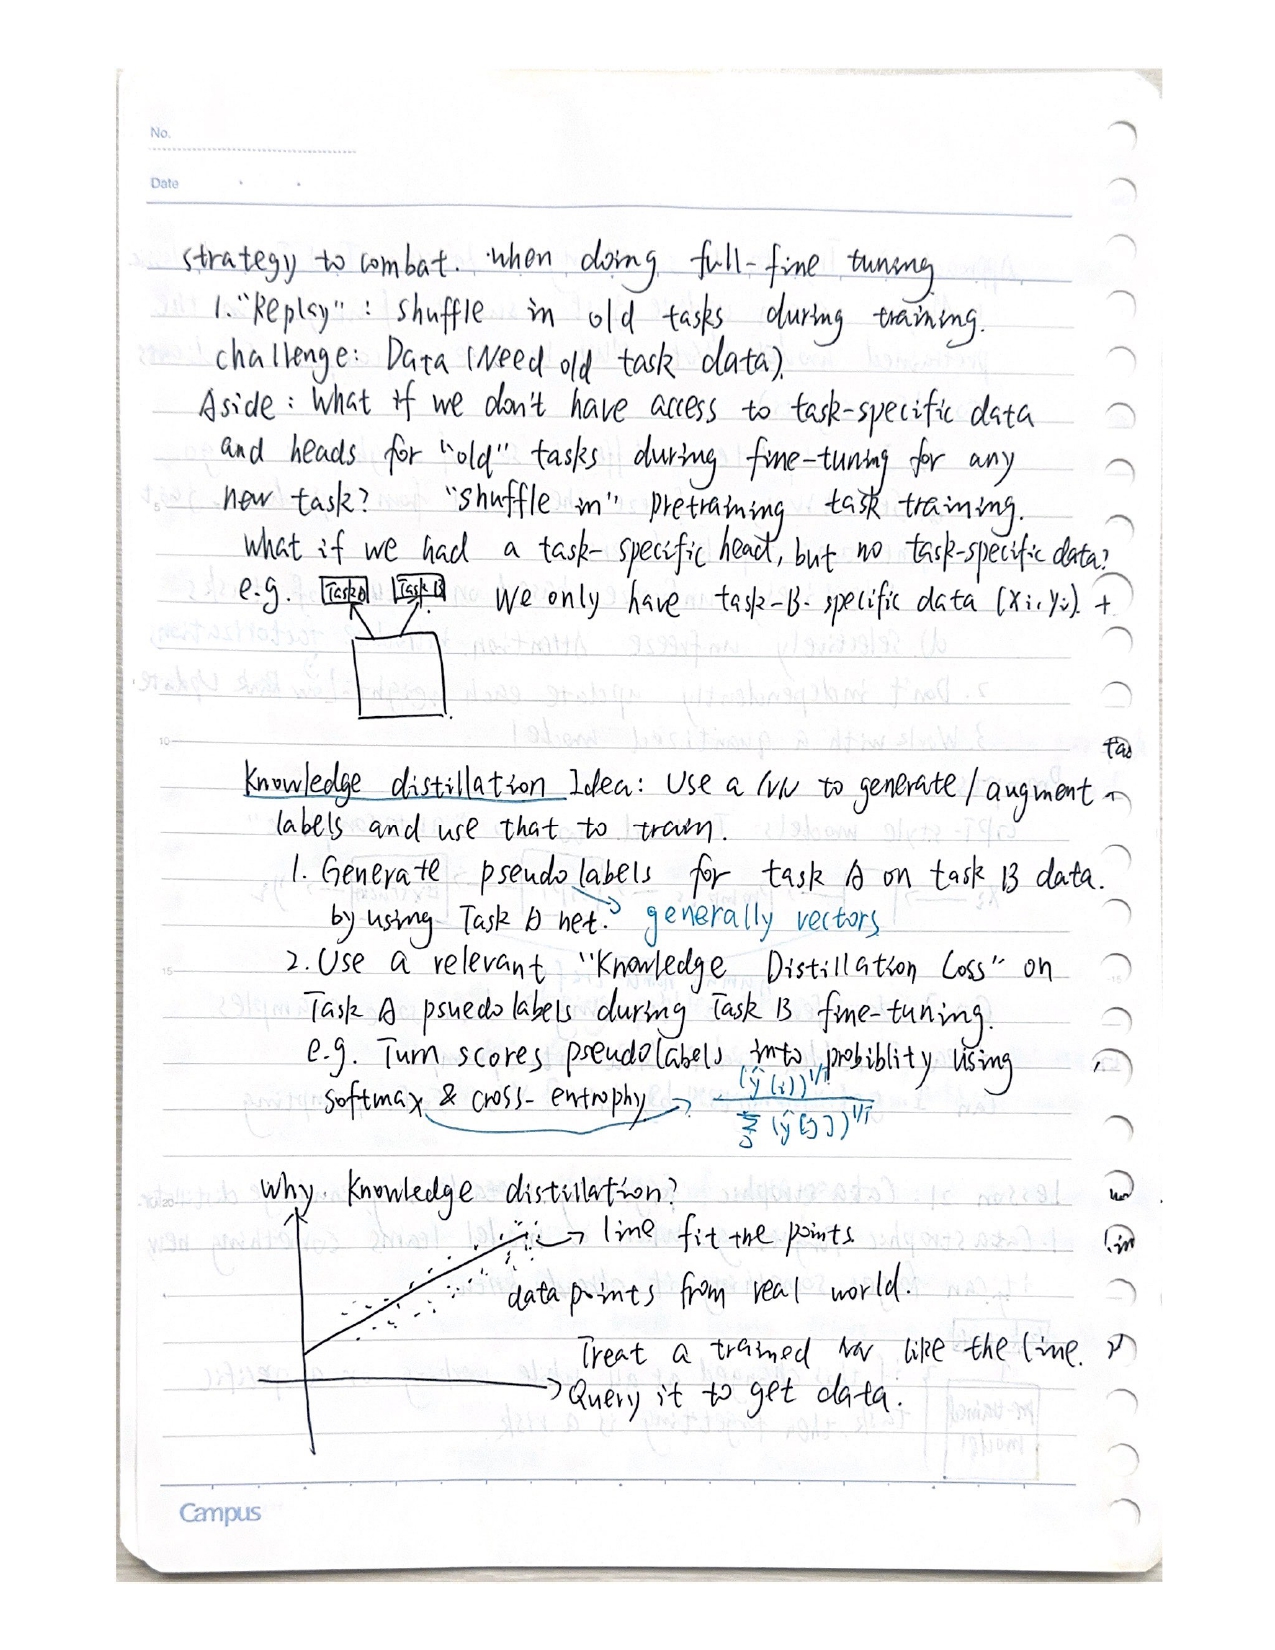 No.
Date
strategy to combat. when doing full-fine tuning
1. "Replay" : shuffle in old tasks during training.
challenge: Data (Need old task data).
Aside : What if we don't have access to task-specific data
and heads for "old" tasks during fine-tuning for any
new task? "shuffle in" pretraining task training.
What if we had a task-specific head, but no task-specific data?
e.g. Task A Task B We only have task-B-specific data (xi, yi). +
Knowledge distillation Idea: Use a NN to generate / augment
labels and use that to train.
1. Generate pseudo labels for task A on task B data.
by using Task A net. generally vectors
2. Use a relevant "Knowledge Distillation Loss" on
Task A psuedo labels during Task B fine-tuning.
e.g. Turn scores pseudolabels into probiblity using
softmax & cross-entrophy (ŷ[i])^1/T / Σ_j (ŷ[j])^1/T
Why. Knowledge distillation?
line fit the points
data points from real world.
Treat a trained NN like the line.
Query it to get data.
Campus